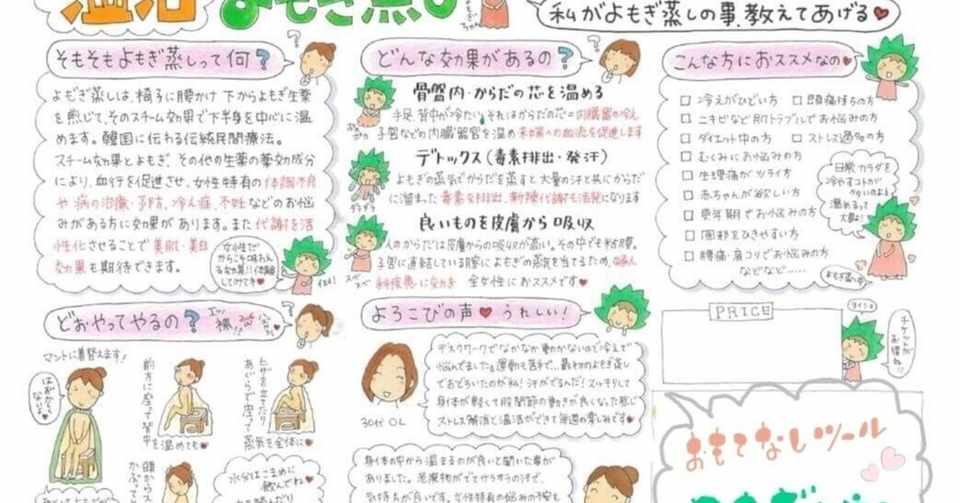 温活 よもぎ蒸し
私がよもぎ蒸しの事、教えてあげる♥
そもそもよもぎ蒸しって何?
よもぎ蒸しは、椅子に腰かけ 下からよもぎ生薬
を煎じて、そのスチーム効果で下半身を中心に温
めます。韓国に伝わる伝統民間療法。
スチーム効果とよもぎ、その他の生薬の薬効成分
により、血行を促進させ、女性特有の体調不良
や 病の治療・予防、冷え症、不妊などのお悩
みがある方に効果があります。また代謝を活
性化させることで美肌・美白
効果も期待できます。
女性だ
からこそ味わえ
る効果!!体験
してけて
どんな効果があるの?
骨盤内・からだの芯を温める
手足、背中が冷たい、それはからだの芯=内臓器の冷え
子宮などの内臓器官を温め末端への血流を促進します
デトックス(毒素排出・発汗)
よもぎの蒸気でからだを蒸すと大量の汗と共にからだ
に溜まった毒素を排出、新陳代謝も活発になります
良いものを皮膚から吸収
人のからだは皮膚からの吸収が高い。その中でも粘膜。
子宮に直結している膣によもぎの蒸気を当てるため、婦人
科疾患に効力 全女性におススメです♥
こんな方におススメなの♥
□ 冷えがひどい方 □ 頭痛持ちの方
□ ニキビなど肌トラブルでお悩みの方
□ ダイエット中の方 □ ストレス過多の方
□ むくみにお悩みの方
□ 生理痛がツライ方
□ 赤ちゃんが欲しい方
□ 更年期でお悩みの方
□ 風邪をひきやすい方
□ 腰痛、肩コリでお悩みの方
などなど.....
温めるって
大事よ!
どおやってやるの?
マントに着替えます!
はずかしく
ないよ♥
前方に座って背中
を温めても♥
ヒザを立てたり
あぐらで座って
蒸気を全体に♥
水分はこまめに
よろこびの声♥うれしい!
30代 OL
デスクワークでなかなか動かないので冷えで
悩んでました。運動も苦手で...最初のよもぎ蒸し
でおどろいたのが私!汗がでるんだ!スッキリして
身体が軽くて股関節の動きが良くなった感じ
ストレス解消と温活ができて毎週の楽しみです♥
身体の中から温まるのが良いと聞いた事が
ありました。老廃物がでてけうそうの汗で、
気持ちが良いです。女性特有の悩みの予防も
PRICE
チケットが
お得ね
おもてなしツール